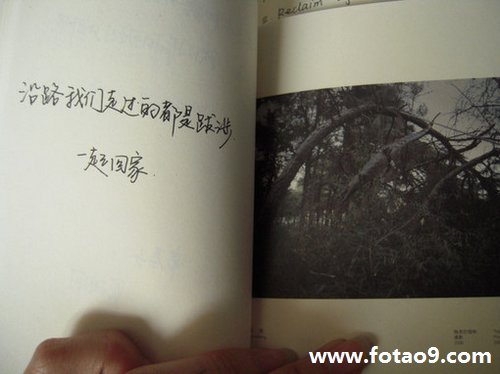 Reclaim
沿路我们走过的都是跋涉
一起回家.
www.fotao9.com